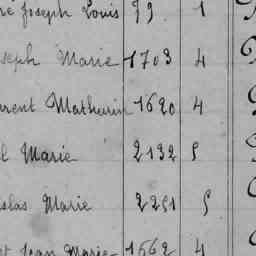 Joseph Louis 99 1
seph Marie 1703 4
urent Mathurin 1620 4
l Marie 2132 5
slas Marie 2251 5
Jean Marie 1562 4